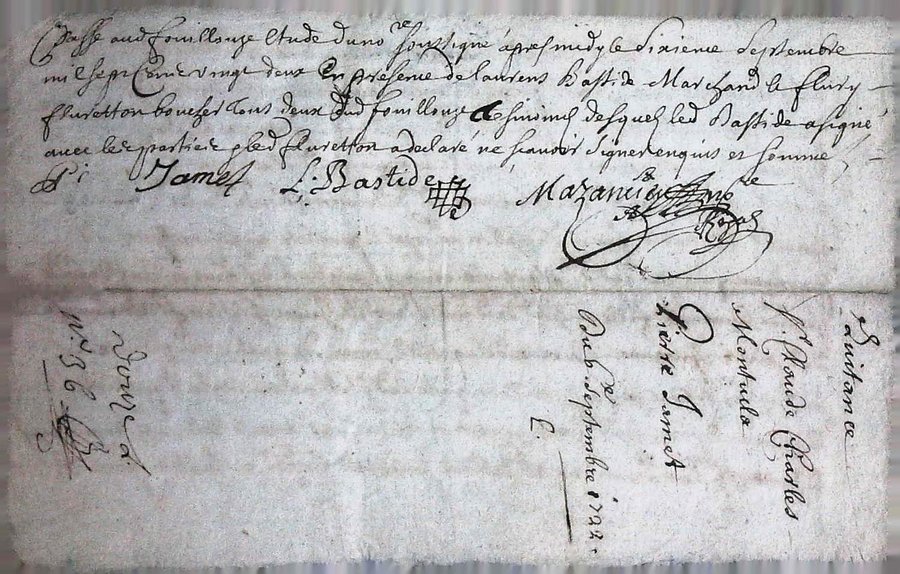 passé aud fouillouze Etude du no.re soussigné apres midy le sixieme septembre
mil sept Cent vingt deux En presence de laurens Bastide Marchand & fleury
fluretton boucher tous deux dud fouillouze tesmoins desquels led Bastide a signé
avec les parties & led fluretton a declaré ne scavoir signer enquis et sommé
Jamet L. Bastide Mazancieu no.re Royal
Quitance
Sr Claude Charles
Montuela
Pierre Jamet
Du 6.e septembre 1722.